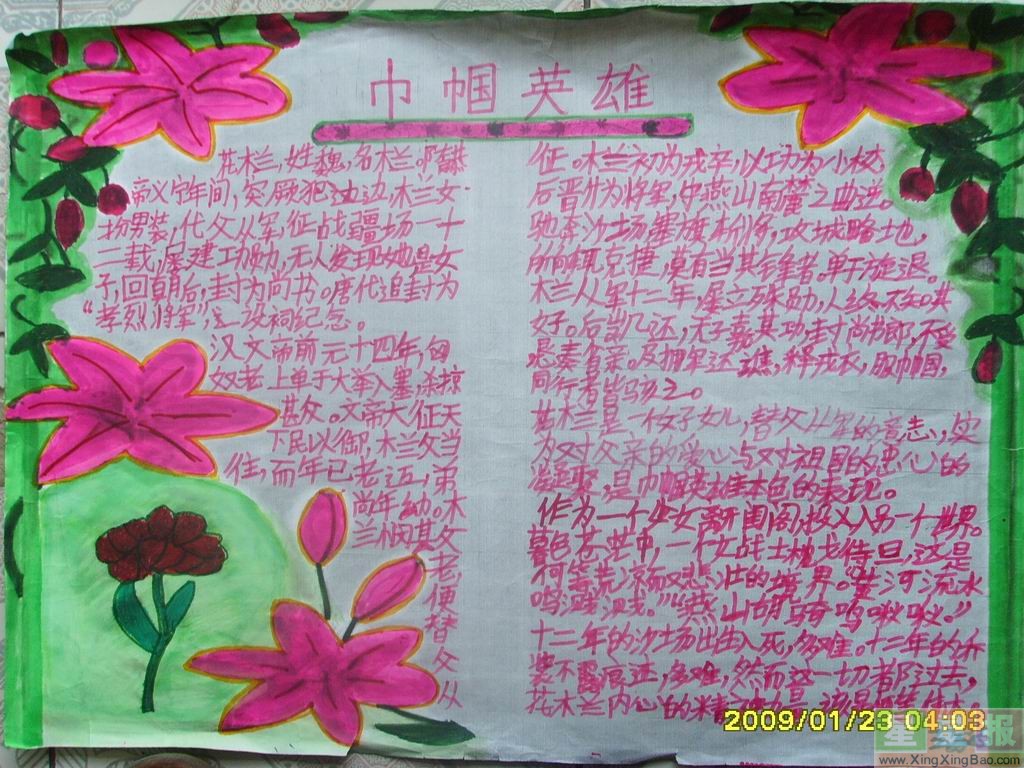 巾帼英雄
花木兰,姓魏,名木兰。隋恭
帝义宁年间,突厥犯边,木兰女
扮男装,代父从军,征战疆场一十
二载,屡建功勋,无人发现她是女
子,回朝后,封为尚书。唐代追封为
“孝烈将军”,立祠纪念。
汉文帝前元十四年,匈
奴老上单于大举入塞,杀掠
甚众。文帝大征天
下民以御,木兰父当
往,而年已老迈,弟
尚年幼。木
兰悯其父
老便替父从
征。木兰初为戍卒,以功为小校
后晋升为将军,
驰奔沙场,攻城略地,
所向克捷,莫有当其锋者。单于旋退。
木兰从军十二年,屡立殊勋,人终不
好。后凯还,天子嘉其功,封尚书郎,不受
恳奏省亲。及拥军还谯,释戎衣,服巾帼,
同行者皆骇之。
花木兰是一位女儿,替父从军的意志,实
为对父亲的爱心与对祖国的忠心的
凝聚,是巾帼英雄本色的表现。
作为一个处女离开闺阁,投入另一个世界。
暮色苍茫中,一个女战士枕戈待旦,这是
何等荒凉而又悲壮的境界。“黄河流水
鸣溅溅。”“燕山胡骑鸣啾啾。”
十二年的沙场出生入死,多难。十二年的乔
装不露痕迹,多难,然而这一切都过去,
花木兰内心的精神力量
2009/01/23 04:03
星星报
www.XingXingBao.com